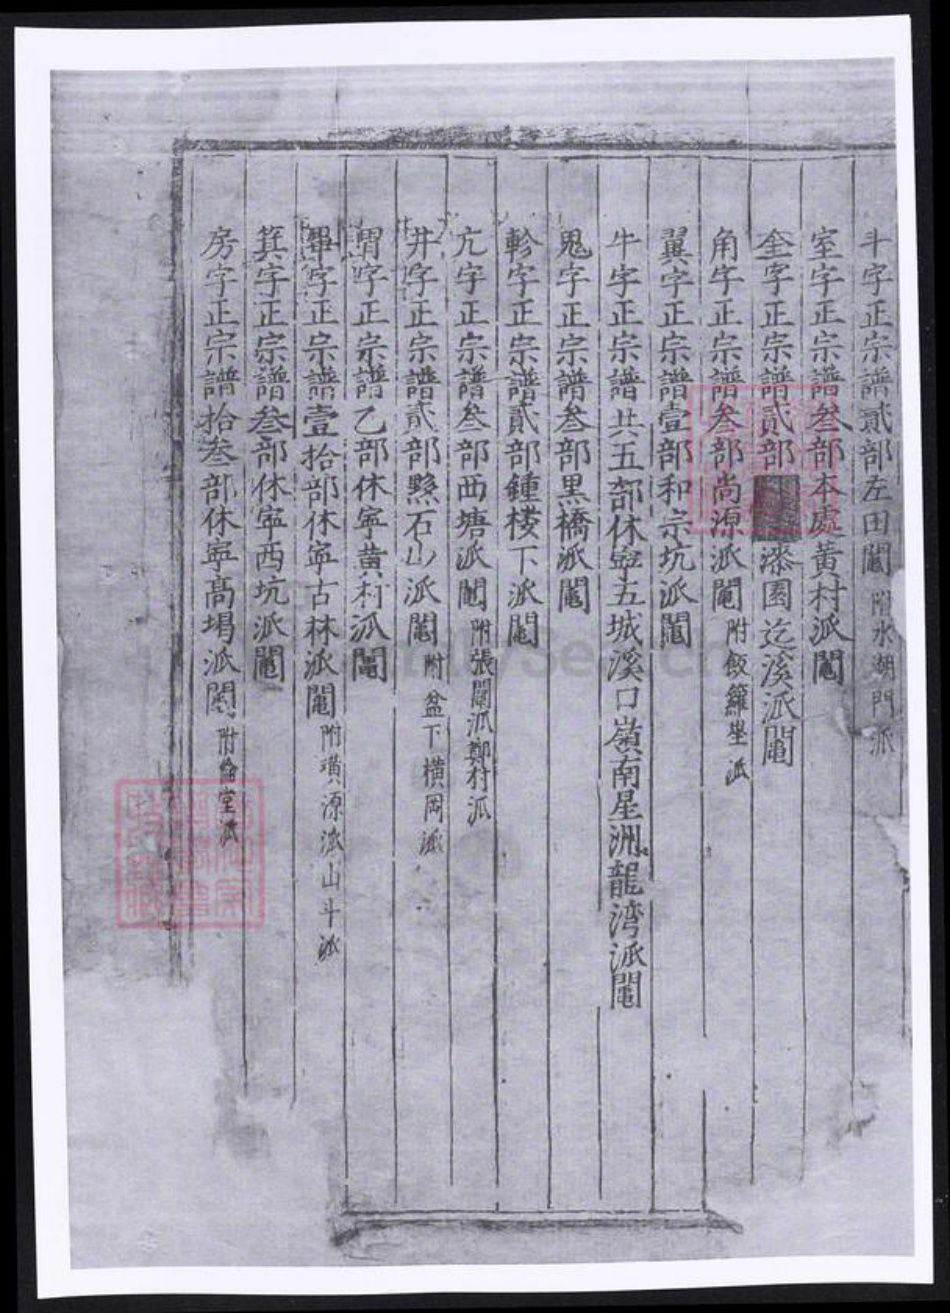 斗字正宗譜貳部左田鬮 附水湖門派
室字正宗譜叄部本處黄村派鬮
奎字正宗譜貳部 漆園迄溪派鬮
角字正宗譜叄部尚源派鬮 附飯籮塋派
翼字正宗譜壹部和宗坑派鬮
牛字正宗譜共五部休寧五城溪口嶺南星洲龍湾派鬮
鬼字正宗譜叄部黒橋派鬮
軫字正宗譜貳部鍾楼下派鬮
亢字正宗譜叄部西塘派鬮 附張閘派鄭村派
井字正宗譜貳部黟石山派鬮 附盆下横岡派
胃字正宗譜乙部休寧黄利派鬮
畢字正宗譜壹拾部休寧古林派鬮 附璜源派山斗派
箕字正宗譜叄部休寧西坑派鬮
房字正宗譜拾叄部休寧髙堨派鬮 附 堂派